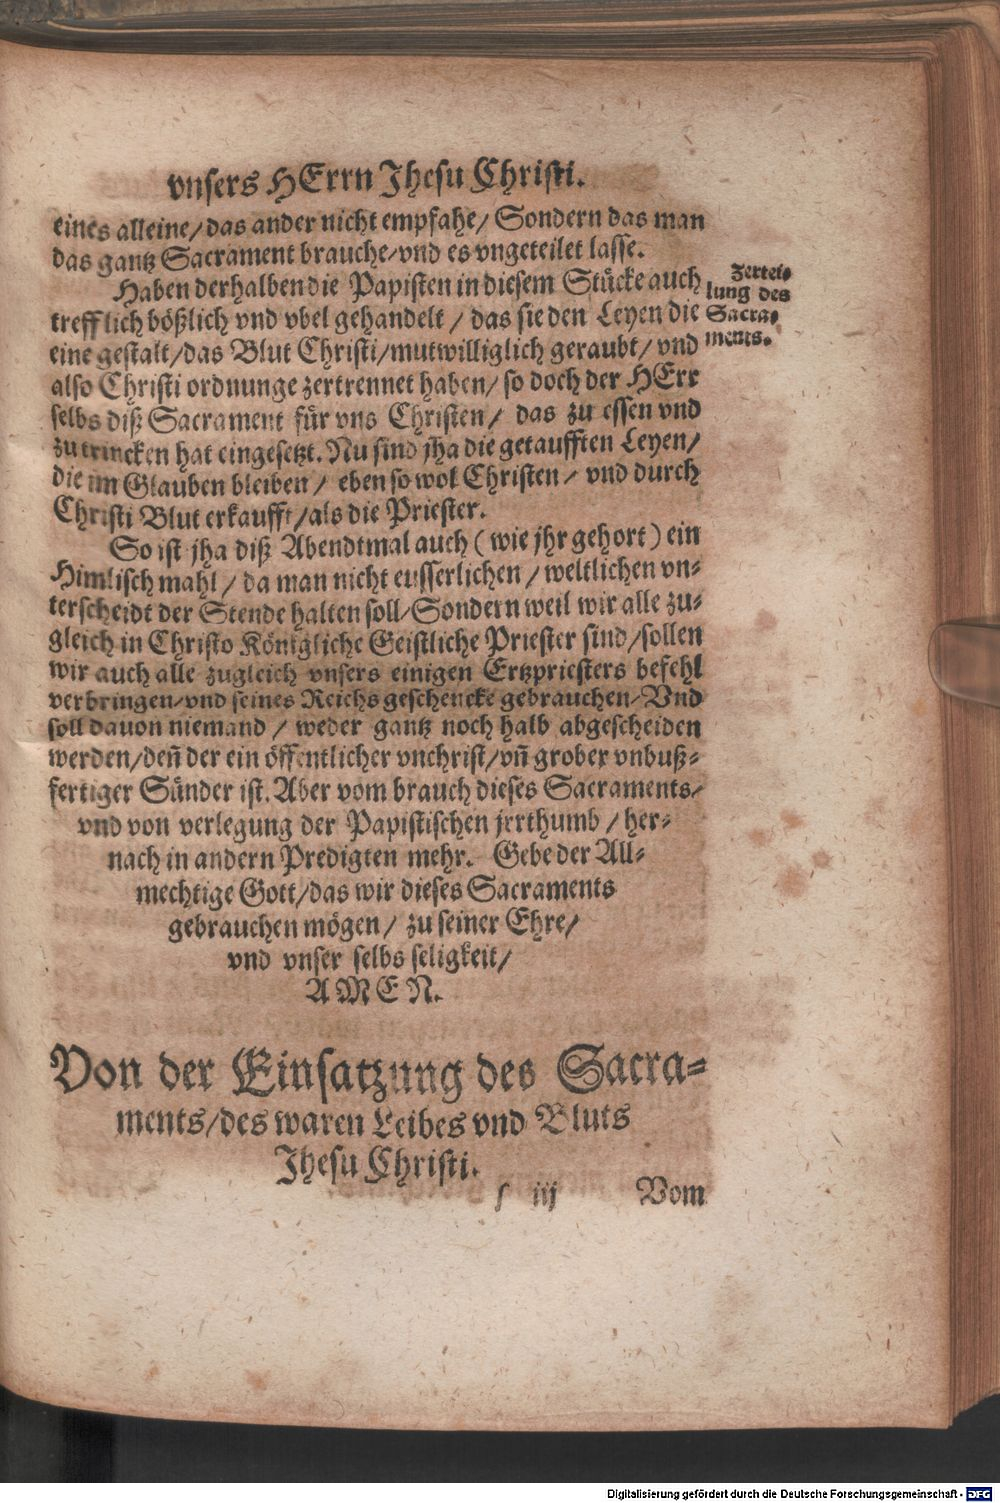 vnsers HErrn Jhesu Christi.
eines alleine/das ander nicht empfahe/ Sondern das man
das gantz Sacrament brauche/vnd es vngeteilet lasse.
Haben derhalben die Papisten in diesem Stücke auch
trefflich bößlich vnd vbel gehandelt / das sie den Leyen die
eine gestalt/das Blut Christi/mutwilliglich geraubt/ vnd
also Christi ordnunge zertrennet haben/ so doch der HErr
selbs diß Sacrament für vns Christen/ das zu essen vnd
zu trincken hat eingesetzt. Nu sind jha die getaufften Leyen/
die im Glauben bleiben / eben so wol Christen / vnd durch
Christi Blut erkaufft/als die Priester.
Zertei-
lung des
Sacra-
ments.
So ist jha diß Abendtmal auch ( wie jhr gehort ) ein
Himlisch mahl / da man nicht eusserlichen / weltlichen vn-
terscheidt der Stende halten soll/Sondern weil wir alle zu-
gleich in Christo Königliche Geistliche Priester sind/sollen
wir auch alle zugleich vnsers einigen Ertzpriesters befehl
verbringen/vnd seines Reichs geschencke gebrauchen/Vnd
soll dauon niemand / weder gantz noch halb abgescheiden
werden/deñ der ein öffentlicher vnchrist/vñ grober vnbuß-
fertiger Sünder ist. Aber vom brauch dieses Sacraments/
vnd von verlegung der Papistischen jrrthumb / her-
nach in andern Predigten mehr. Gebe der All-
mechtige Gott/das wir dieses Sacraments
gebrauchen mögen / zu seiner Ehre/
vnd vnser selbs seligkeit/
AMEN.
Von der Einsatzung des Sacra-
ments/des waren Leibes vnd Bluts
Jhesu Christi.
f iij Vom
Digitalisierung gefördert durch die Deutsche Forschungsgemeinschaft - DFG